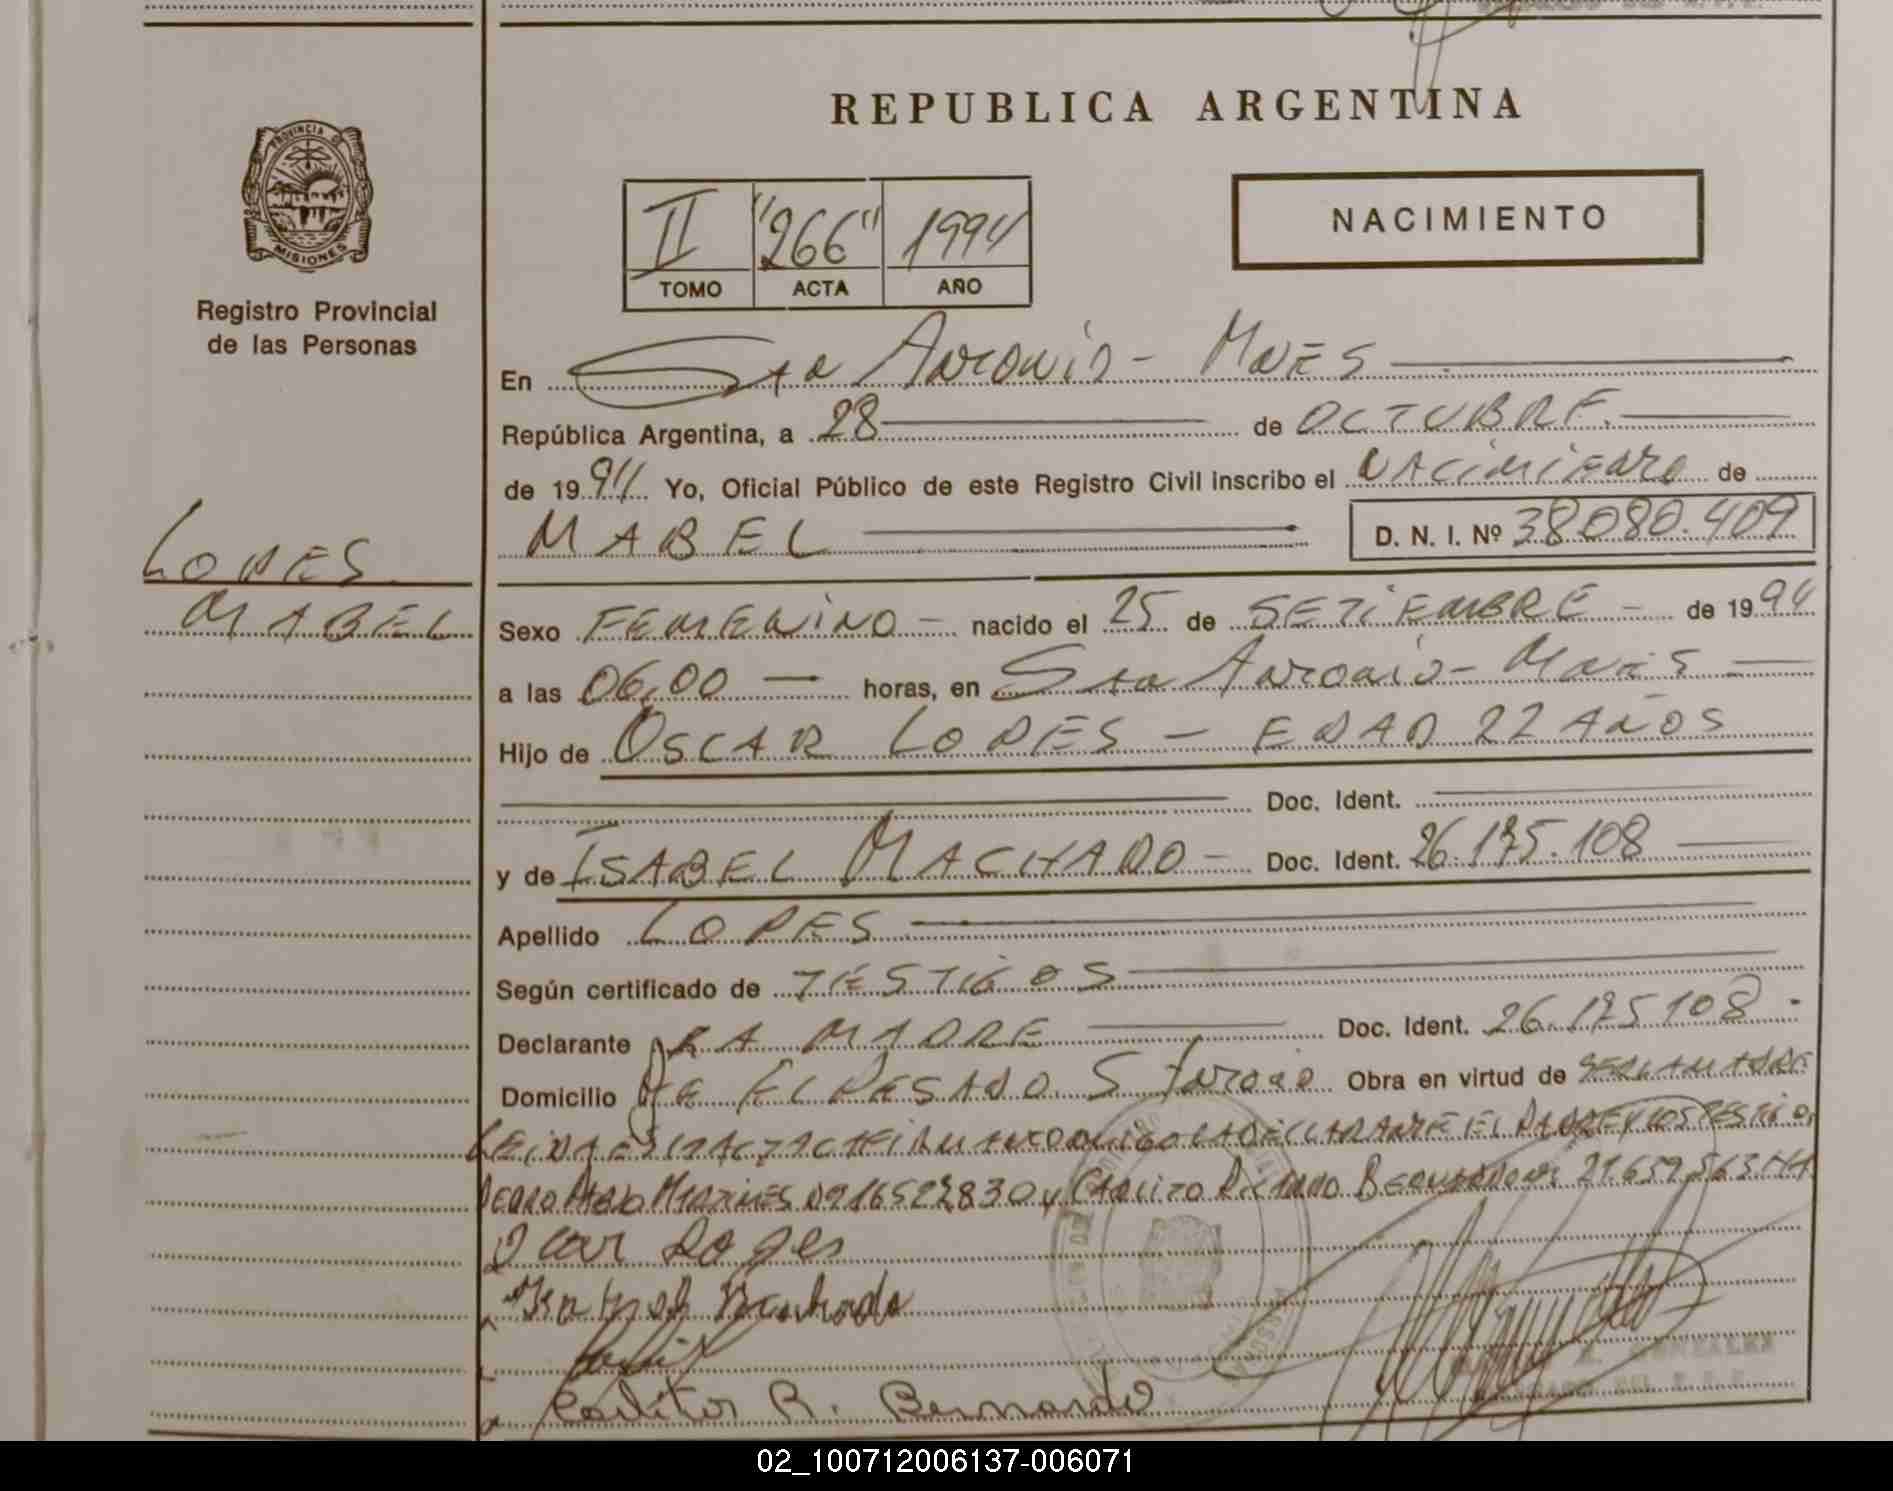 REPUBLICA ARGENTINA
PROVINCIA DE
MISIONES
Registro Provincial
de las Personas
II "266" 1994
TOMO ACTA AÑO
NACIMIENTO
En Sto Antonio - Mnes
República Argentina, a 28 de OCTUBRE.
de 1994 Yo, Oficial Público de este Registro Civil inscribo el NACIMIENTO de
MABEL
D. N. I. Nº 38.080.409
LOPES
MABEL
Sexo FEMENINO - nacido el 25 de SETIEMBRE - de 1994
a las 06,00 horas, en Sto Antonio - Mnes
Hijo de OSCAR LOPES - EDAD 22 AÑOS
Doc. Ident.
y de ISABEL MACHADO - Doc. Ident. 26.175.108
Apellido LOPES
Según certificado de TESTIGOS
Declarante LA MADRE Doc. Ident. 26.175.108
Domicilio Pje EL PESADO. S. Antonio Obra en virtud de
LEIDA ESTA ACTA LA DECLARANTE EL PADRE Y LOS TESTIGOS
PEDRO MARTINES 16522830 y CARLITO BERNARDO 21.659.563
Oscar Lopes
Machado
Carlitos R. Bernardo
GONZALEZ
02_100712006137-006071